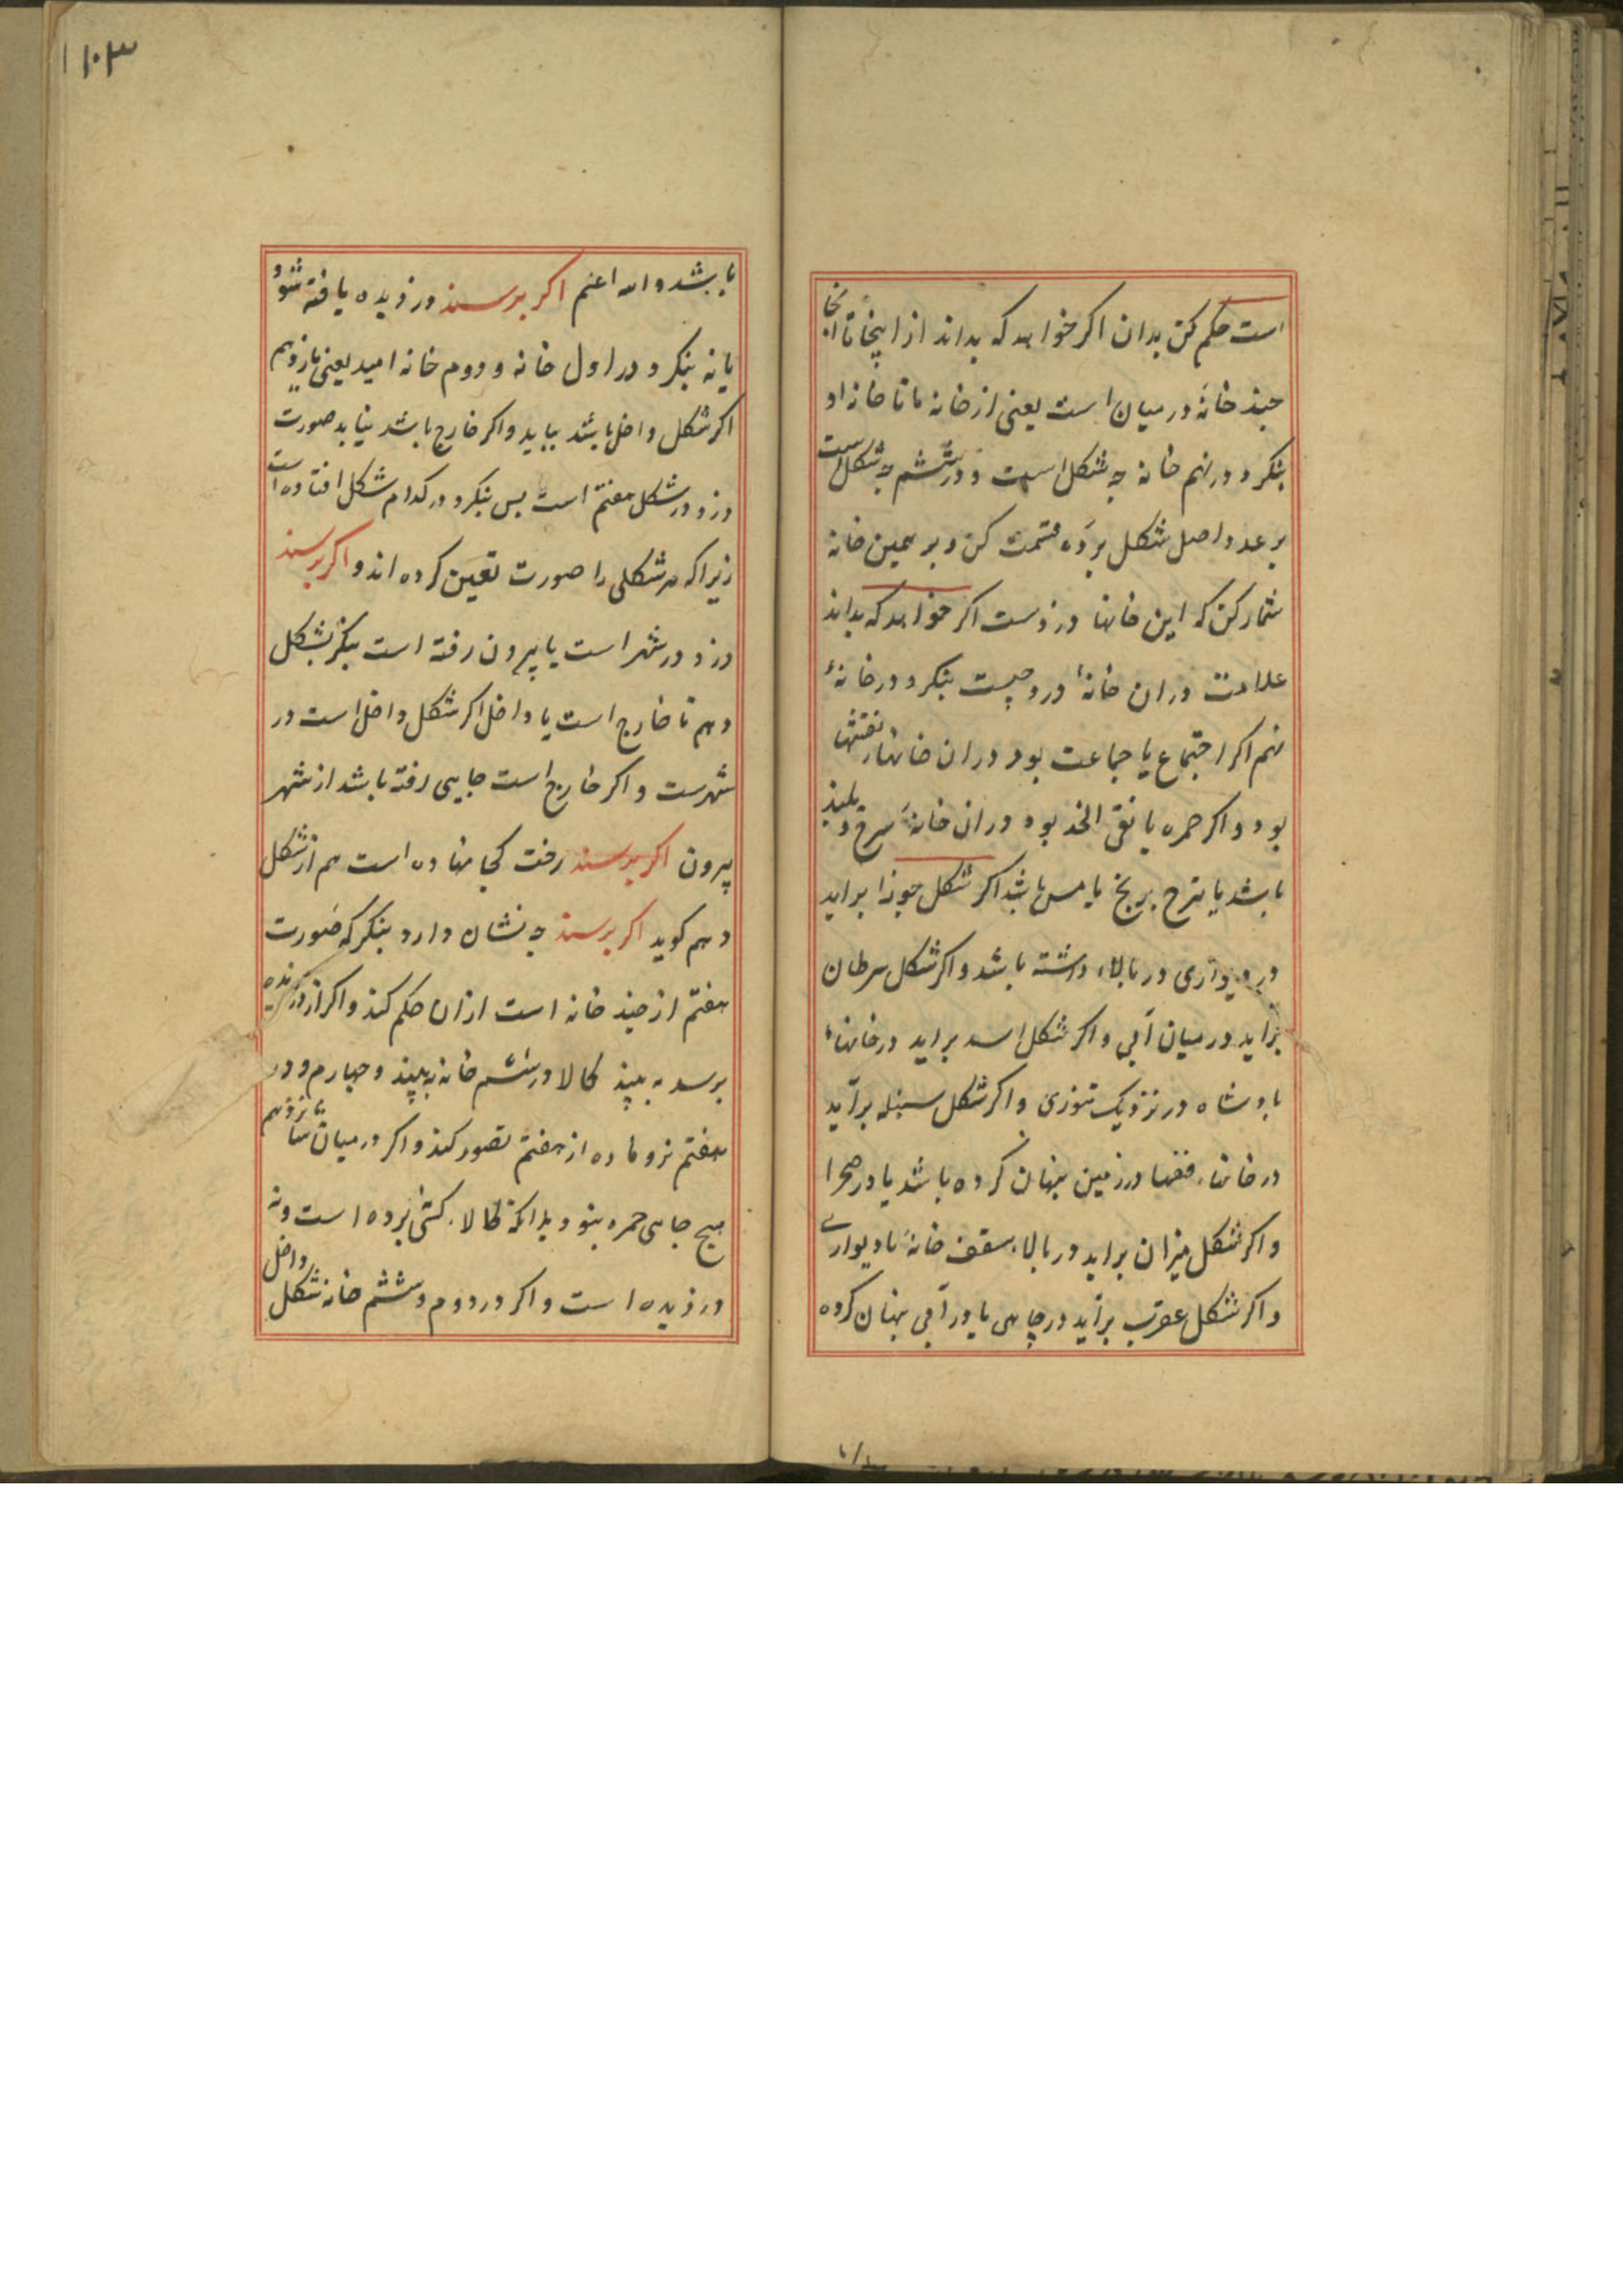 است حکم کن بدان اکر خواهد که بداند از اینجا تا انجا
جند خانه در میان است یعنی از خانه ما تا خانه او
بنکرد در نهم خانه جه شکل است و در ششم جه شکل است
بر عدد اصل شکل برده قسمت کن و بر همین خانه
شمار کن که این خانها دزدست اکر خواهد که بداند
علامت دران خانهٔ درد چیست بنکرد در خانهٔ
نهم اکر اجتماع یا جماعت بود دران خانها نقشها
بود و اکر حمره یا نقی الخد بود دران خانه سرخ و بلید
باشد یا برنج یا مس باشد اکر شکل جوزا براید
در دیواری در بالاء داشته باشد و اکر شکل سرطان
براید در میان آبی و اکر شکل اسد براید در خانهاء
بادشاه در نزدیک تنوری و اکر شکل سنبله برآید
در خانهاء در زمین بنهان کرده باشد یا در صحرا
و اکر شکل میزان براید در بالاء سقف خانه یا دیواری
و اکر شکل عقرب برآید در چاهی یا در آبی بنهان کرده
۱۰۳
باشد و الله اعلم اکر برسند دزدیده یافته شود
یا نه بنکرد در اول خانه و دوم خانه امید یعنی یازدهم
اکر شکل داخل باشد بیابد و اکر خارج باشد نیابد صورت
دزد در شکل هفتم است بس بنکرد در کدام شکل افتاده است
زیرا که هر شکلی را صورت تعین کرده اند و اکر برسند
دزد در شهر است یا بیرون رفته است بنکر بشکل
دهم تا خارج است یا داخل اکر شکل داخل است در
شهرست و اکر خارج است جایی رفته باشد از شهر
بیرون اکر برسند رخت کجا نهاده است هم از شکل
دهم کوید اکر برسند جه نشان دارد بنکر که صورت
هفتم از جند خانه است ازان حکم کند و اکر از دزدیده
برسد به بیند کالا در ششم خانه به بیند و جهارم و در
هفتم نر و ماده از هفتم تصور کند و اکر در میان تا شانزدهم
هیج جای حمره نبود بدانکه کالا کسی نبرده است و نه
دزدیده است و اکر در دوم و ششم خانه شکل داخل